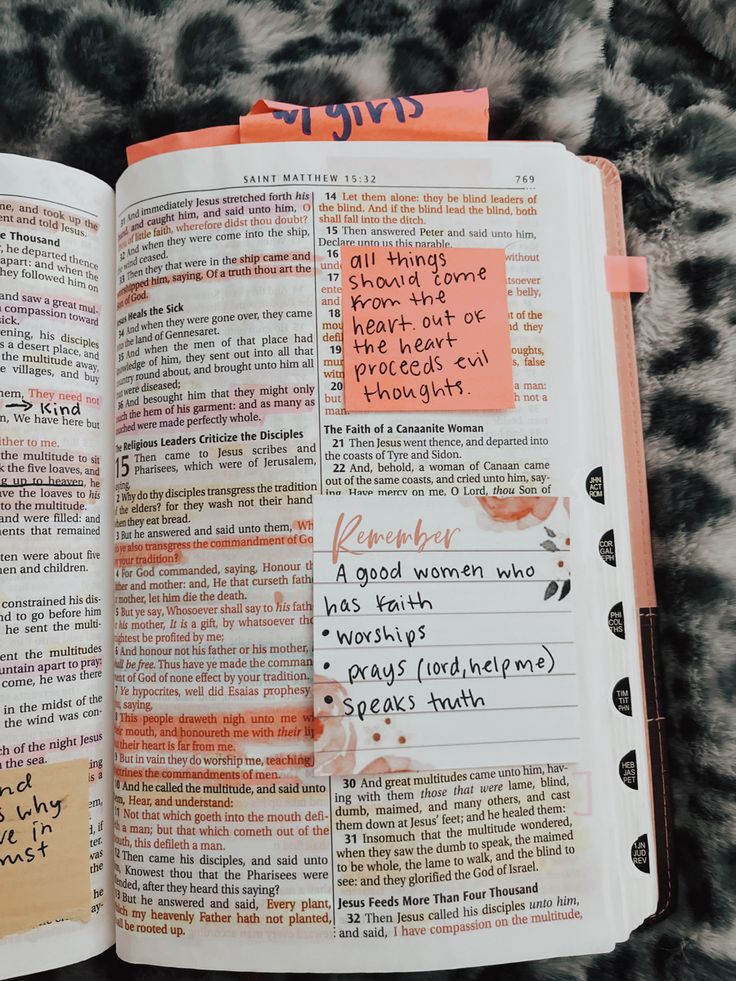 w/ girls
SAINT MATTHEW 15:32
769
me, and took up the
ent and told Jesus.
e Thousand
, he departed thence
apart: and when the
hey followed him on
and saw a great mul-
compassion toward
sick.
ening, his disciples
s a desert place, and
the multitude away,
e villages, and buy
em, They need not
→ Kind
n, We have here but
ither to me.
the multitude to sit
k the five loaves, and
g up to heaven, he
ave the loaves to his
to the multitude.
and were filled: and
ents that remained
ten were about five
en and children.
constrained his dis-
nd to go before him
he sent the multi-
ent the multitudes
untain apart to pray:
come, he was there
in the midst of the
the wind was con-
ch of the night Jesus
the sea.
nd
s why
ve in
rust
31 And immediately Jesus stretched forth his
hand, and caught him, and said unto him, O
of little faith, wherefore didst thou doubt?
32 And when they were come into the ship,
the wind ceased.
33 Then they that were in the ship came and
worshipped him, saying, Of a truth thou art the
Son of God.
Jesus Heals the Sick
34 And when they were gone over, they came
into the land of Gennesaret.
35 And when the men of that place had
knowledge of him, they sent out into all that
country round about, and brought unto him all
that were diseased;
36 And besought him that they might only
touch the hem of his garment: and as many as
touched were made perfectly whole.
The Religious Leaders Criticize the Disciples
15 Then came to Jesus scribes and
Pharisees, which were of Jerusalem,
saying,
2 Why do thy disciples transgress the tradition
of the elders? for they wash not their hand
when they eat bread.
3 But he answered and said unto them, Wh
do ye also transgress the commandment of Go
your tradition?
4 For God commanded, saying, Honour th
father and mother: and, He that curseth fath
mother, let him die the death.
5 But ye say, Whosoever shall say to his fath
or his mother, It is a gift, by whatsoever tho
mightest be profited by me;
6 And honour not his father or his mother,
shall be free. Thus have ye made the comman
ment of God of none effect by your tradition.
7 Ye hypocrites, well did Esaias prophesy
you, saying,
8 This people draweth nigh unto me w
their mouth, and honoureth me with their li
but their heart is far from me.
9 But in vain they do worship me, teaching
doctrines the commandments of men.
10 And he called the multitude, and said unto
them, Hear, and understand:
11 Not that which goeth into the mouth defi-
eth a man; but that which cometh out of the
mouth, this defileth a man.
12 Then came his disciples, and said unto
him, Knowest thou that the Pharisees were
offended, after they heard this saying?
13 But he answered and said, Every plant,
which my heavenly Father hath not planted,
shall be rooted up.
14 Let them alone: they be blind leaders of
the blind. And if the blind lead the blind, both
shall fall into the ditch.
15 Then answered Peter and said unto him,
Declare unto us this parable.
16
without
17
atsoever
ente
e belly,
and
18
ut of the
mou
nd they
defil
19
oughts,
mur
s, false
witn
20
a man:
but
h not a
man.
all things
should come
from the
heart. out of
the heart
proceeds evil
thoughts.
The Faith of a Canaanite Woman
21 Then Jesus went thence, and departed into
the coasts of Tyre and Sidon.
22 And, behold, a woman of Canaan came
out of the same coasts, and cried unto him, say-
ing, Have mercy on me, O Lord, thou Son of
Remember
A good women who
has faith
• worships
• prays (lord, help me)
• speaks truth
30 And great multitudes came unto him, hav-
ing with them those that were lame, blind,
dumb, maimed, and many others, and cast
them down at Jesus' feet; and he healed them:
31 Insomuch that the multitude wondered,
when they saw the dumb to speak, the maimed
to be whole, the lame to walk, and the blind to
see: and they glorified the God of Israel.
Jesus Feeds More Than Four Thousand
32 Then Jesus called his disciples unto him,
and said, I have compassion on the multitude,
JHN
ACT
ROM
COR
GAL
EPH
PHI
COL
THS
TIM
TIT
PHN
HEB
JAS
PET
1JN
JUD
REV